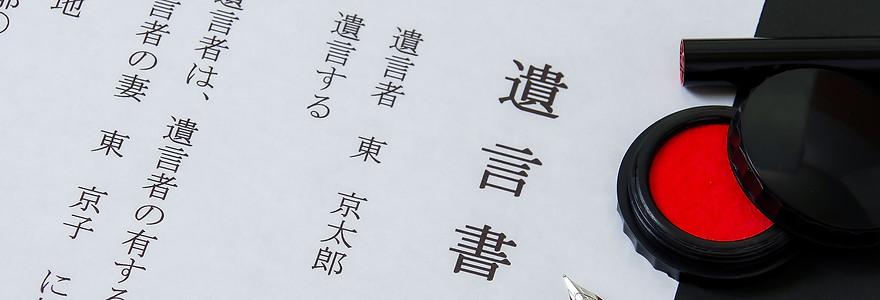 遺言書
遺言者 東 京太郎
遺言する
遺言者は、遺言者の有する
言者の妻 東 京子 に
地